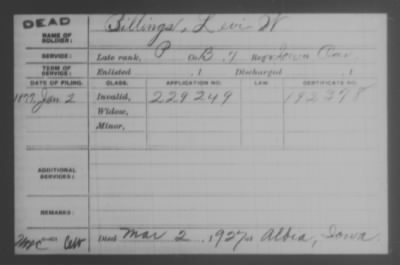 DEAD
NAME OF SOLDIER: Billings, Levi W
SERVICE: Late rank, P Co. B. 7 Reg't Iowa Cav
TERM OF SERVICE: Enlisted , 1 Discharged , 1
DATE OF FILING. CLASS. APPLICATION NO. LAW. CERTIFICATE NO.
1877, Jan 2 Invalid, 229249 192398
Widow,
Minor,
ADDITIONAL SERVICES:
REMARKS:
Died Mar 2, 1927 at Albia, Iowa.